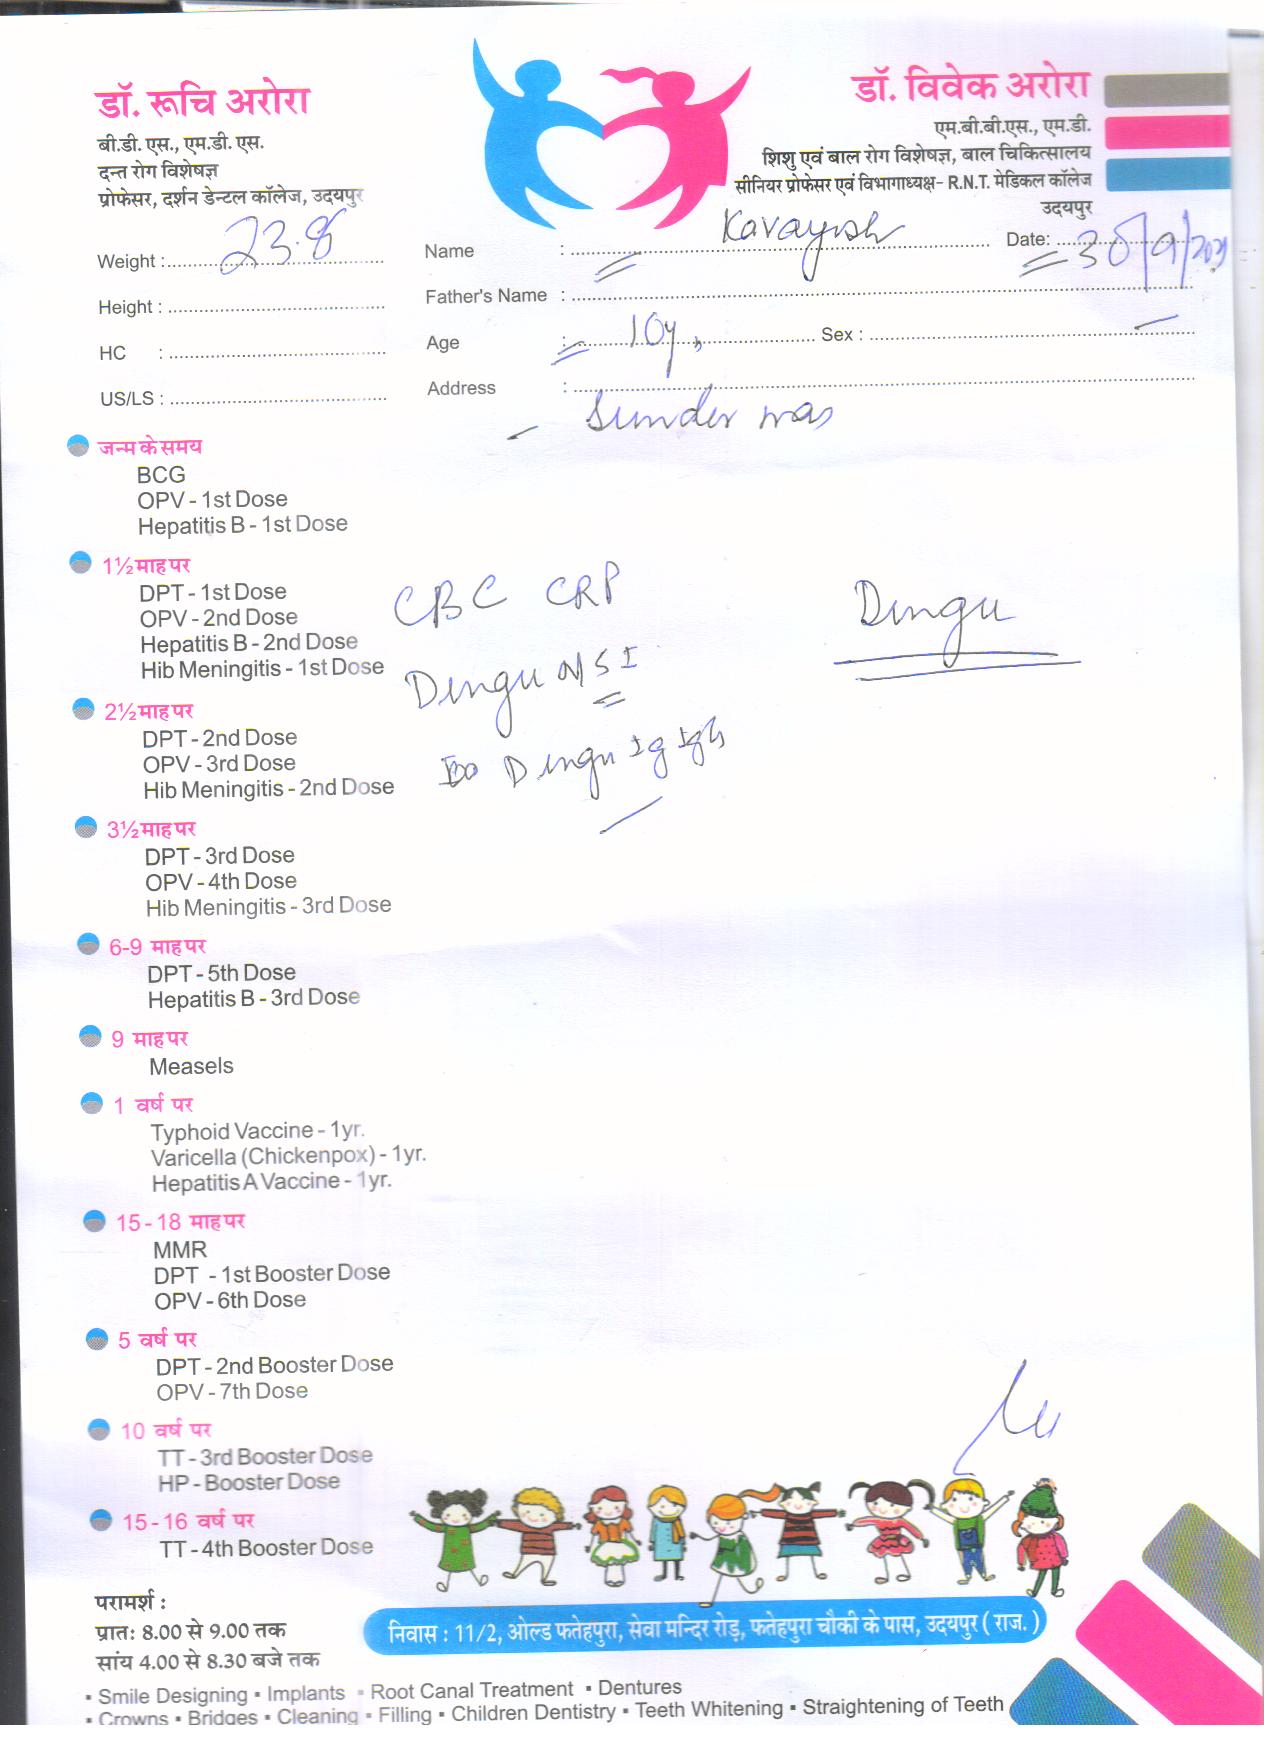 डॉ. रूचि अरोरा
बी.डी. एस., एम.डी. एस.
दन्त रोग विशेषज्ञ
प्रोफेसर, दर्शन डेन्टल कॉलेज, उदयपुर
डॉ. विवेक अरोरा
एम.बी.बी.एस., एम.डी.
शिशु एवं बाल रोग विशेषज्ञ, बाल चिकित्सालय
सीनियर प्रोफेसर एवं विभागाध्यक्ष- R.N.T. मेडिकल कॉलेज
उदयपुर
Weight : 23.8
Name : Kavayish
Date: 30/9/2021
Height :
Father's Name :
HC :
Age : 10y,
Sex :
US/LS :
Address :
Sunder was
जन्म के समय
BCG
OPV - 1st Dose
Hepatitis B - 1st Dose
1½ माह पर
DPT - 1st Dose
OPV - 2nd Dose
Hepatitis B - 2nd Dose
Hib Meningitis - 1st Dose
2½ माह पर
DPT - 2nd Dose
OPV - 3rd Dose
Hib Meningitis - 2nd Dose
3½ माह पर
DPT - 3rd Dose
OPV - 4th Dose
Hib Meningitis - 3rd Dose
6-9 माह पर
DPT - 5th Dose
Hepatitis B - 3rd Dose
9 माह पर
Measels
1 वर्ष पर
Typhoid Vaccine - 1yr.
Varicella (Chickenpox) - 1yr.
Hepatitis A Vaccine - 1yr.
15-18 माह पर
MMR
DPT - 1st Booster Dose
OPV - 6th Dose
5 वर्ष पर
DPT - 2nd Booster Dose
OPV - 7th Dose
10 वर्ष पर
TT - 3rd Booster Dose
HP - Booster Dose
15-16 वर्ष पर
TT - 4th Booster Dose
CBC CRP
Dingu NSI
Dingu Ig IgG
Dingu
परामर्श :
प्रातः 8.00 से 9.00 तक
सांय 4.00 से 8.30 बजे तक
निवास : 11/2, ओल्ड फतेहपुरा, सेवा मन्दिर रोड़, फतेहपुरा चौकी के पास, उदयपुर ( राज. )
▪ Smile Designing ▪ Implants ▪ Root Canal Treatment ▪ Dentures
▪ Crowns ▪ Bridges ▪ Cleaning ▪ Filling ▪ Children Dentistry ▪ Teeth Whitening ▪ Straightening of Teeth